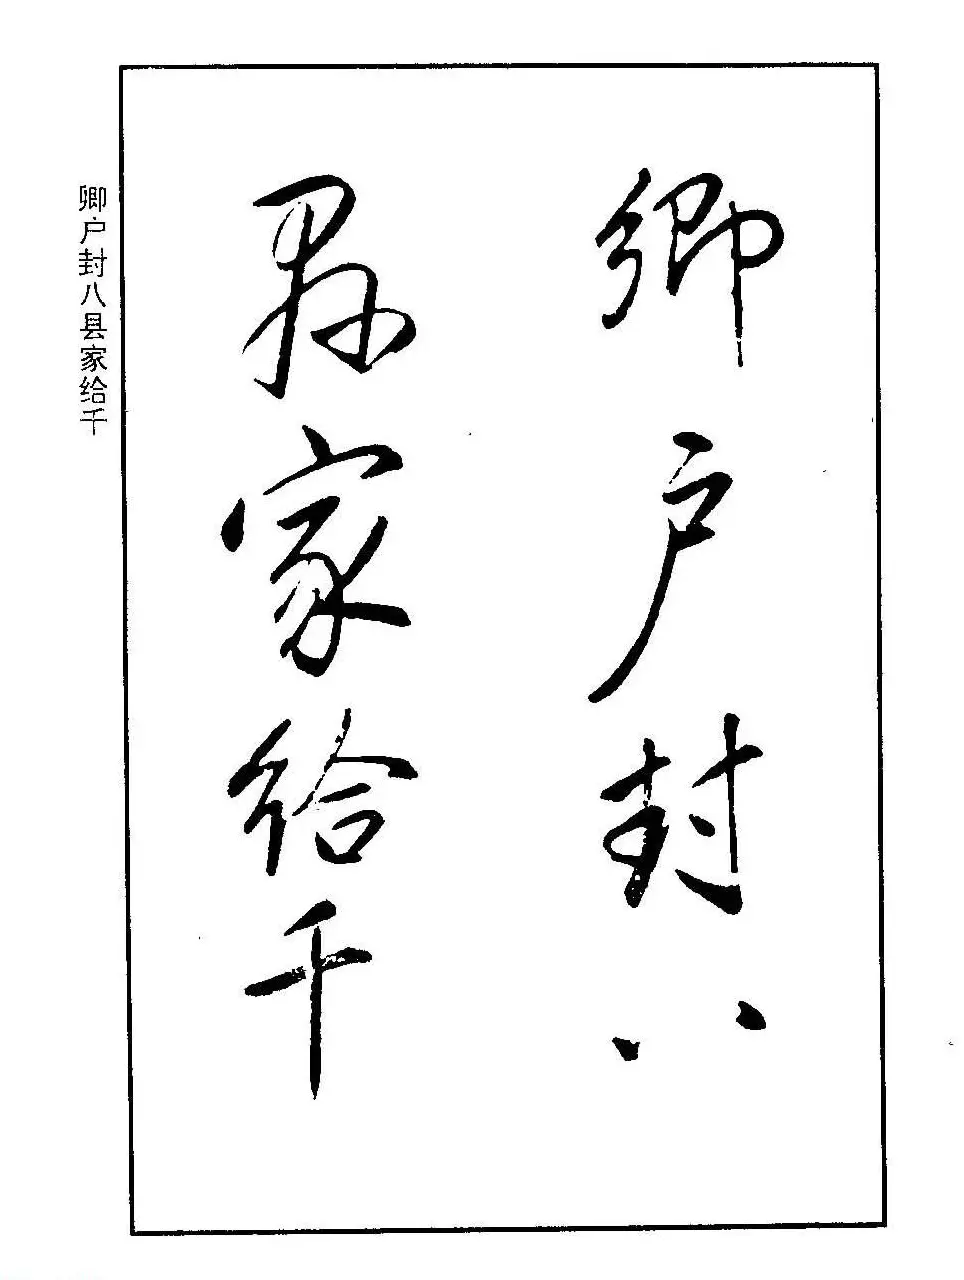 卿户封八
县家给千
卿户封八县家给千